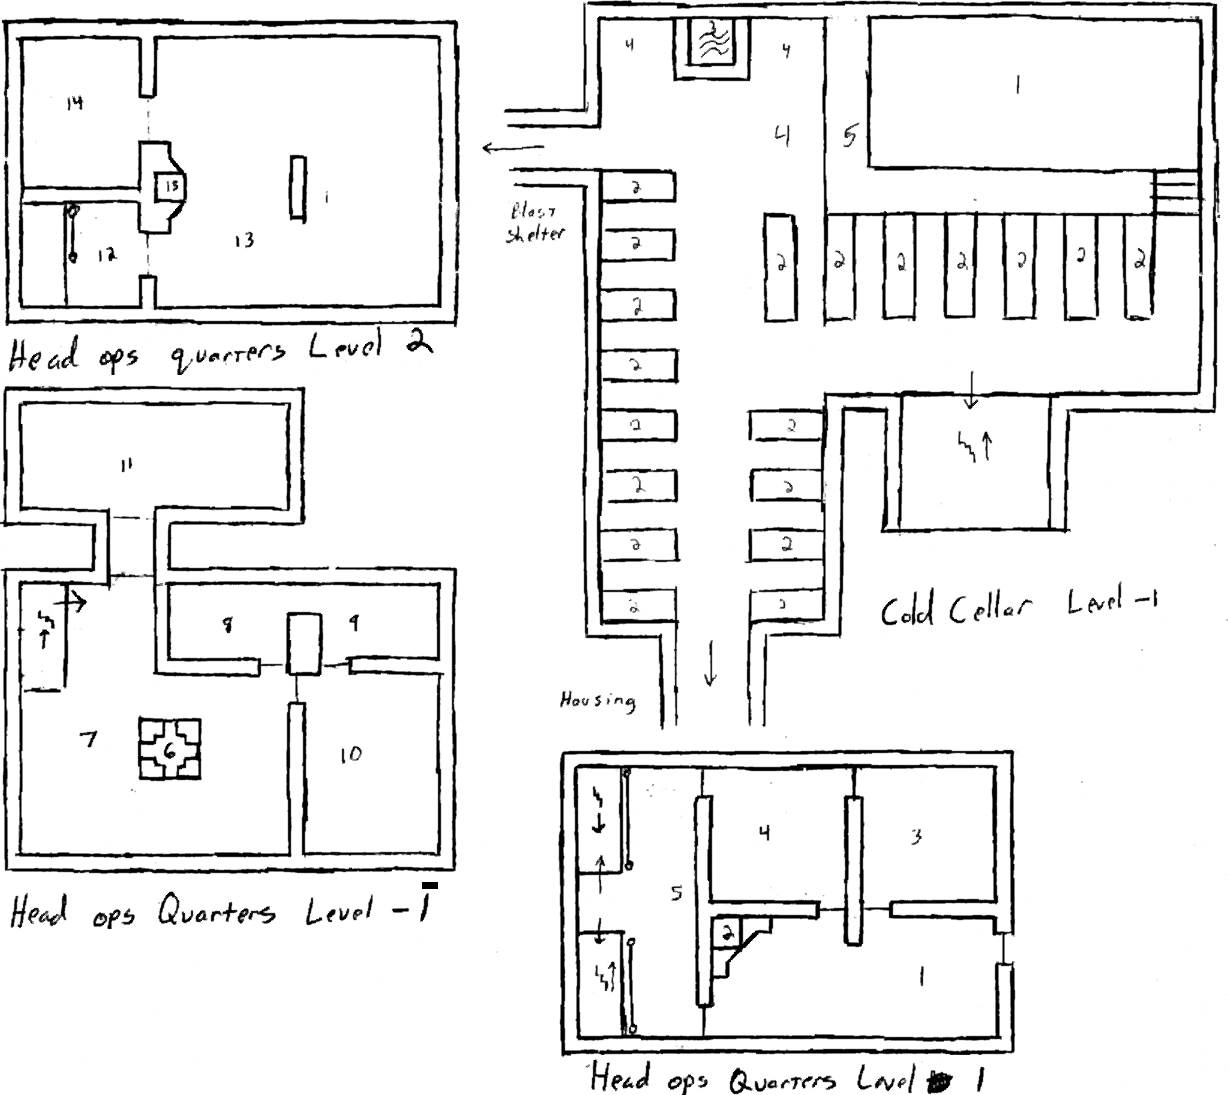 14
15
1
13
12
Head ops quarters Level 2
11
8
9
7
6
10
Head ops Quarters Level -1
4
3
4
4
5
1
Blast
Shelter
2
2
2
2
2
2
2
2
2
2
2
2
2
2
2
2
2
2
2
Cold Cellar Level -1
Housing
4
3
5
2
1
Head ops Quarters Level 1